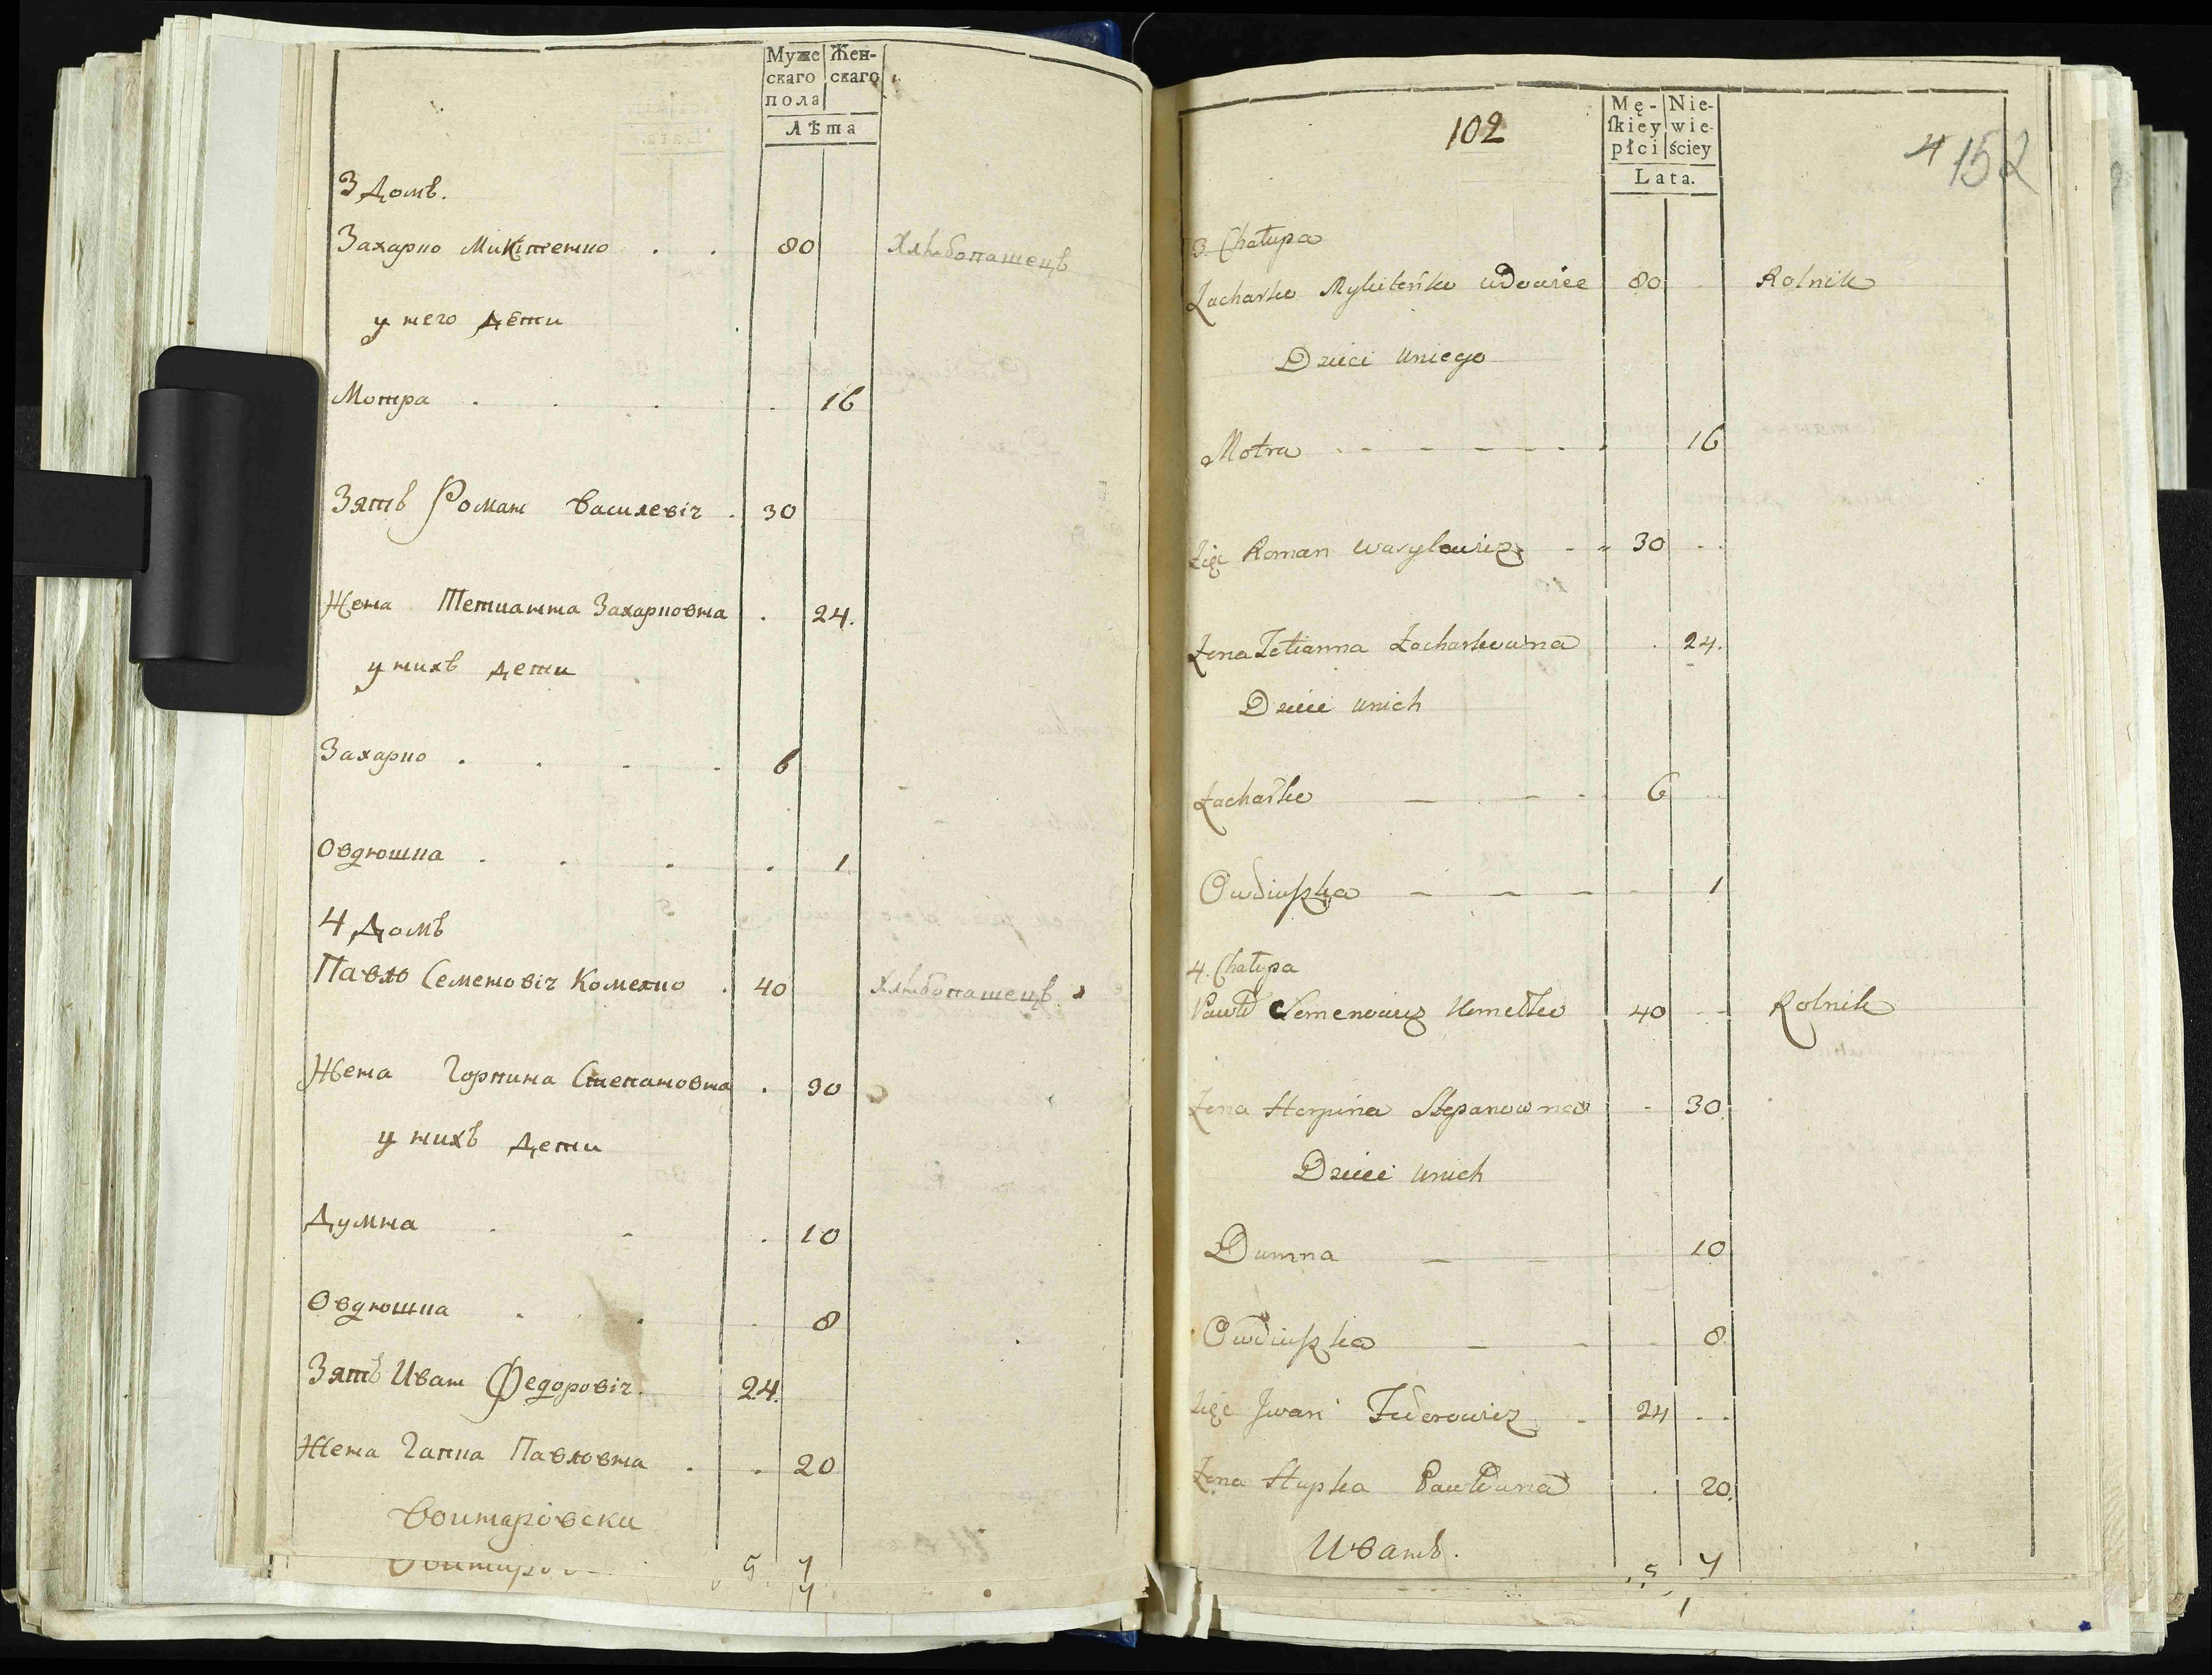 Муже Жен-
скаго скаго
пола
Лѣта
3 Домъ.
Захарко Микитенко . . 80 Хлѣбопашецъ
у него дети
Мотра . . . . 16
Зять Роман Василевіч . 30
Жена Тетианна Захарковна . 24.
у нихъ дети
Захарко . . . . 6
Овдюшка . . . . 1
4 Домъ
Павло Семеновіч Комелко . 40 Хлѣбопашецъ
Жена Горпина Степановна . 30
у нихъ дети
Думна . . . 10
Овдюшка . . . 8
Зять Иван Федоровіч. 24.
Жена Гапка Павловна . . 20
5 7
102
4 152
Mę- Nie-
ſkiey wie-
płci ściey
Lata.
3. Chałupa
Zacharko Mykitenko wdowiec 80 Rolnik
Dzieci uniego
Motra 16
Zięć Roman Wasylowicz 30
Żona Tetianna Zacharkowna 24.
Dzieci unich
Zacharko 6
Owdiuszka 1
4. Chałupa
Pawło Semenowicz Komełko 40 Rolnik
Żona Horpina Stepanowna 30
Dzieci unich
Dumna 10
Owdiuszka 8
Zięć Iwan Fedorowicz 24
Żona Hapka Pawłowna 20.
Иванъ.
5 7